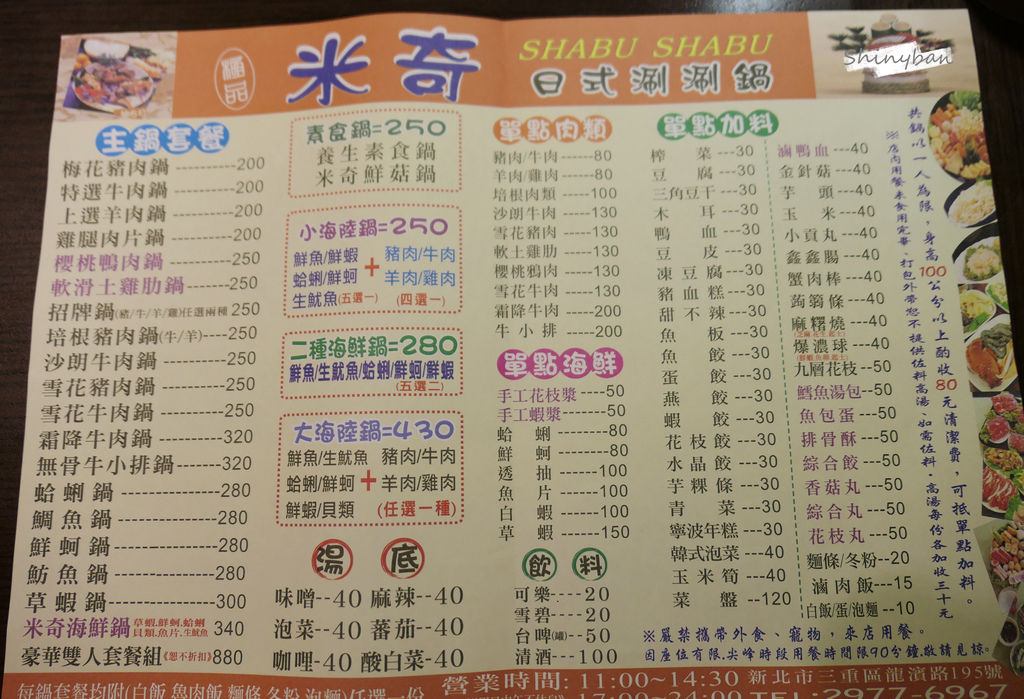 極品 米奇 SHABU SHABU
日式涮涮鍋
Shinyban
主鍋套餐
梅花豬肉鍋---------200
特選牛肉鍋---------200
上選羊肉鍋---------200
雞腿肉片鍋---------200
櫻桃鴨肉鍋---------250
軟滑土雞肋鍋------250
招牌鍋(豬/牛/羊/雞)任選兩種 250
培根豬肉鍋(牛/羊)----250
沙朗牛肉鍋---------250
雪花豬肉鍋---------250
雪花牛肉鍋---------250
霜降牛肉鍋---------320
無骨牛小排鍋------320
蛤蜊鍋------------280
鯛魚鍋------------280
鮮蚵鍋------------280
魴魚鍋------------280
草蝦鍋------------300
米奇海鮮鍋 草蝦.鮮蚵.蛤蜊 貝類.魚片.生魷魚 340
豪華雙人套餐組《恕不折扣》880
素食鍋=250
養生素食鍋
米奇鮮菇鍋
小海陸鍋=250
鮮魚/鮮蝦 豬肉/牛肉
蛤蜊/鮮蚵 + 羊肉/雞肉
生魷魚(五選一) (四選一)
二種海鮮鍋=280
鮮魚/生魷魚/蛤蜊/鮮蚵/鮮蝦
(五選二)
大海陸鍋=430
鮮魚/生魷魚 豬肉/牛肉
蛤蜊/鮮蚵 + 羊肉/雞肉
鮮蝦/貝類 (任選一種)
湯底
味噌--40 麻辣--40
泡菜--40 蕃茄--40
咖哩-40 酸白菜-40
單點肉類
豬肉/牛肉------80
羊肉/雞肉------80
培根肉類-----100
沙朗牛肉-----130
雪花豬肉-----130
軟土雞肋-----130
櫻桃鴨肉-----130
雪花牛肉-----130
霜降牛肉-----200
牛小排-------200
單點海鮮
手工花枝漿----50
手工蝦漿------50
蛤蜊--------80
鮮蚵--------80
透抽-------100
魚片-------100
白蝦-------100
草蝦-------150
飲料
可樂----20
雪碧----20
台啤(罐)--50
清酒---100
單點加料
榨菜---30
豆腐---30
三角豆干---30
木耳---30
鴨血---30
豆皮---30
凍豆腐---30
豬血糕---30
甜不辣---30
魚板---30
魚餃---30
蛋餃---30
燕餃---30
蝦餃---30
花枝餃---30
水晶餃---30
芋粿條---30
青菜---30
寧波年糕---30
韓式泡菜---40
玉米筍---40
菜盤--120
滷鴨血---40
金針菇---40
芋頭---40
玉米---40
小貢丸---40
鑫鑫腸---40
蟹肉棒---40
蒟蒻條---40
麻糬燒---40
爆濃球---40
九層花枝---50
鱈魚湯包---50
魚包蛋---50
排骨酥---50
綜合餃---50
香菇丸---50
綜合丸---50
花枝丸---50
麵條/冬粉--20
滷肉飯---15
白飯/蛋/泡麵--10
共鍋以一人為限，身高100公分以上酌收80元清潔費，可抵單點加料。
※店內用餐未食用完畢、打包外帶恕不提供佐料高湯、如需佐料、高湯每份各加收三十元
※嚴禁攜帶外食、寵物，來店用餐。
因座位有限.尖峰時段用餐時間限90分鐘.敬請見諒。
每鍋套餐均附(白飯 魯肉飯 麵條 冬粉 泡麵)任選一份
營業時間: 11:00~14:30 新北市三重區龍濱路195號